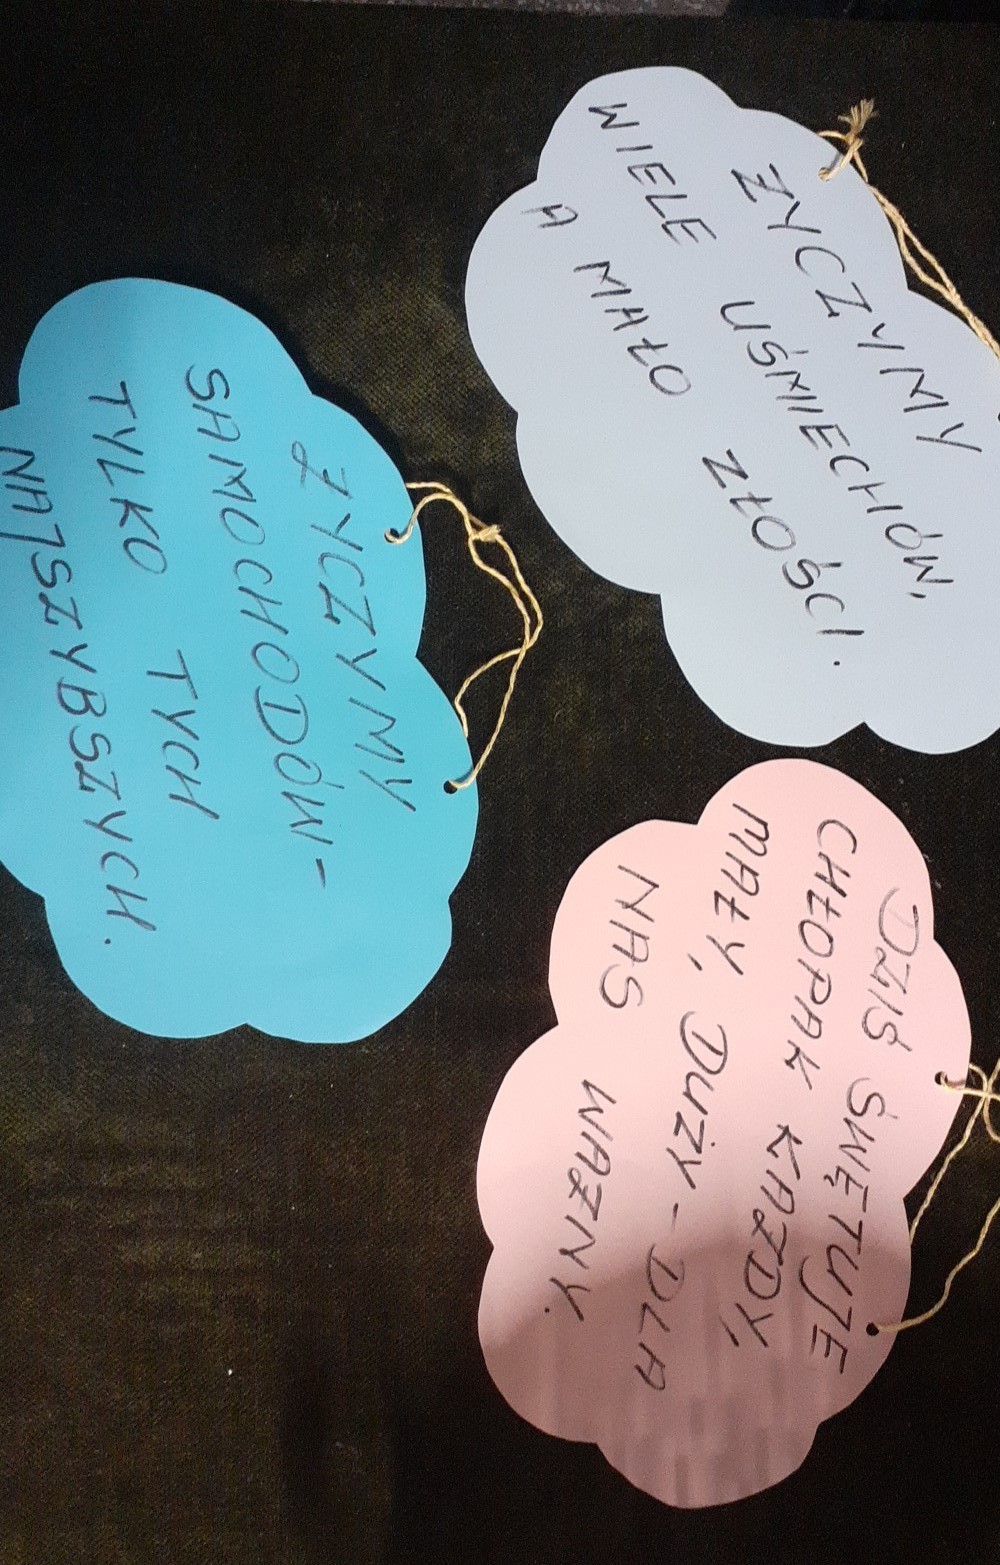 ŻYCZYMY
WIELE UŚMIECHÓW,
A MAŁO ZŁOŚCI.
DZIŚ ŚWĘTUJE
CHŁOPAK KAŻDY,
MAŁY, DUŻY - DLA
NAS WAŻNY.
ŻYCZYMY
SAMOCHODÓW -
TYLKO TYCH
NAJSZYBSZYCH.